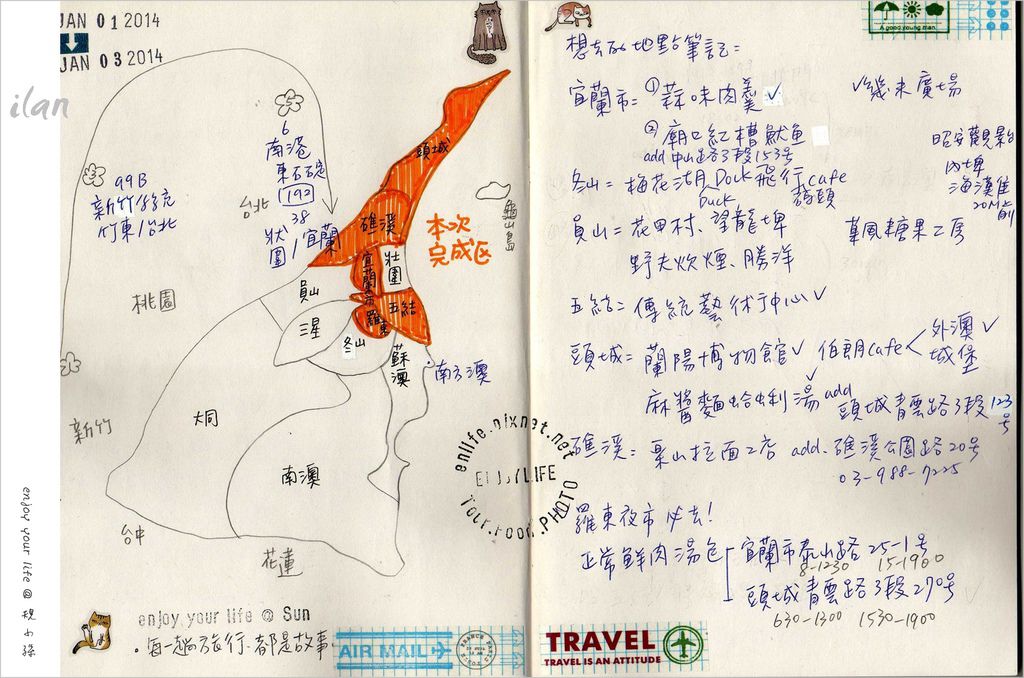 JAN 01 2014
JAN 03 2014
ilan
6
南港
東石碇
192
38
狀圍/宜蘭
99B
新竹/竹北
竹東/台北
台北
頭城
龜山島
礁溪
本次
完成区
宜蘭市
壯圍
員山
三星
五結
羅東
冬山
蘇澳
南方澳
桃園
新竹
大同
南澳
台中
花蓮
enlife.pixnet.net
ENJOY LIFE
Tour.Food.PHOTO
enjoy your life @ Sun
・每一趟旅行、都是故事。
AIR MAIL
enjoy your life @
A good young man
想去的地點筆記=
宜蘭市=①蒜味肉羹✓
✓幾米廣場
②廟口紅糟魷魚
add 中山路3段153号
冬山=梅花湖 Dock 飛行cafe
Duck
員山=花田村、望龍埤
菓風糖果工房
野夫炊煙、勝洋
昭安觀景台
內埤
海漢堡
五結=傳統藝術中心✓
頭城=蘭陽博物館✓ 伯朗cafe<外澳✓
城堡
麻醬麵蛤蜊湯✓ add 頭城青雲路3段123号
礁溪=栗山拉面2店 add.礁溪公園路20号
03-988-7225
羅東夜市必去!
正常鮮肉湯包 宜蘭市泰山路25-1号
8-1230 15-1900
頭城青雲路3段270号
630-1300 1530-1900
TRAVEL
TRAVEL IS AN ATTITUDE